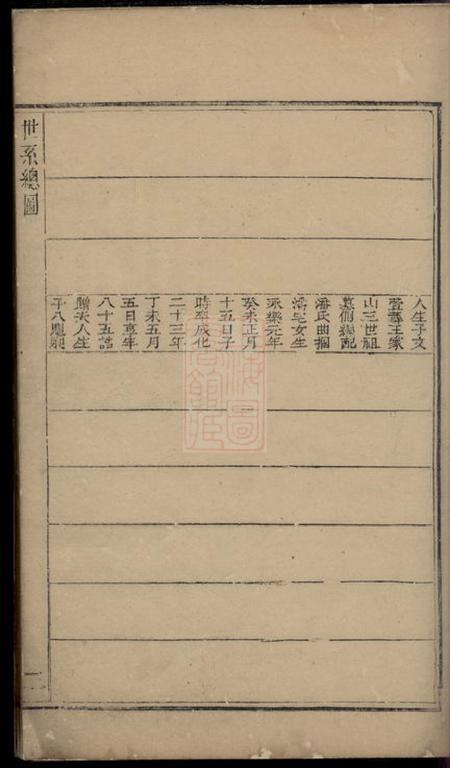 世系總圖
人生子文
萱葬王家
山三世祖
墓側繼配
潘氏曲掘
潘宅女生
永樂元年
癸未正月
十五日子
時卒成化
二十三年
丁未五月
五日享年
八十五誥
贈夫人生
子八
二